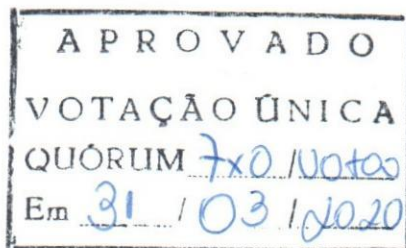 APROVADO
VOTAÇÃO ÚNICA
QUÓRUM 7x0 / Votos
Em 31 / 03 / 2020